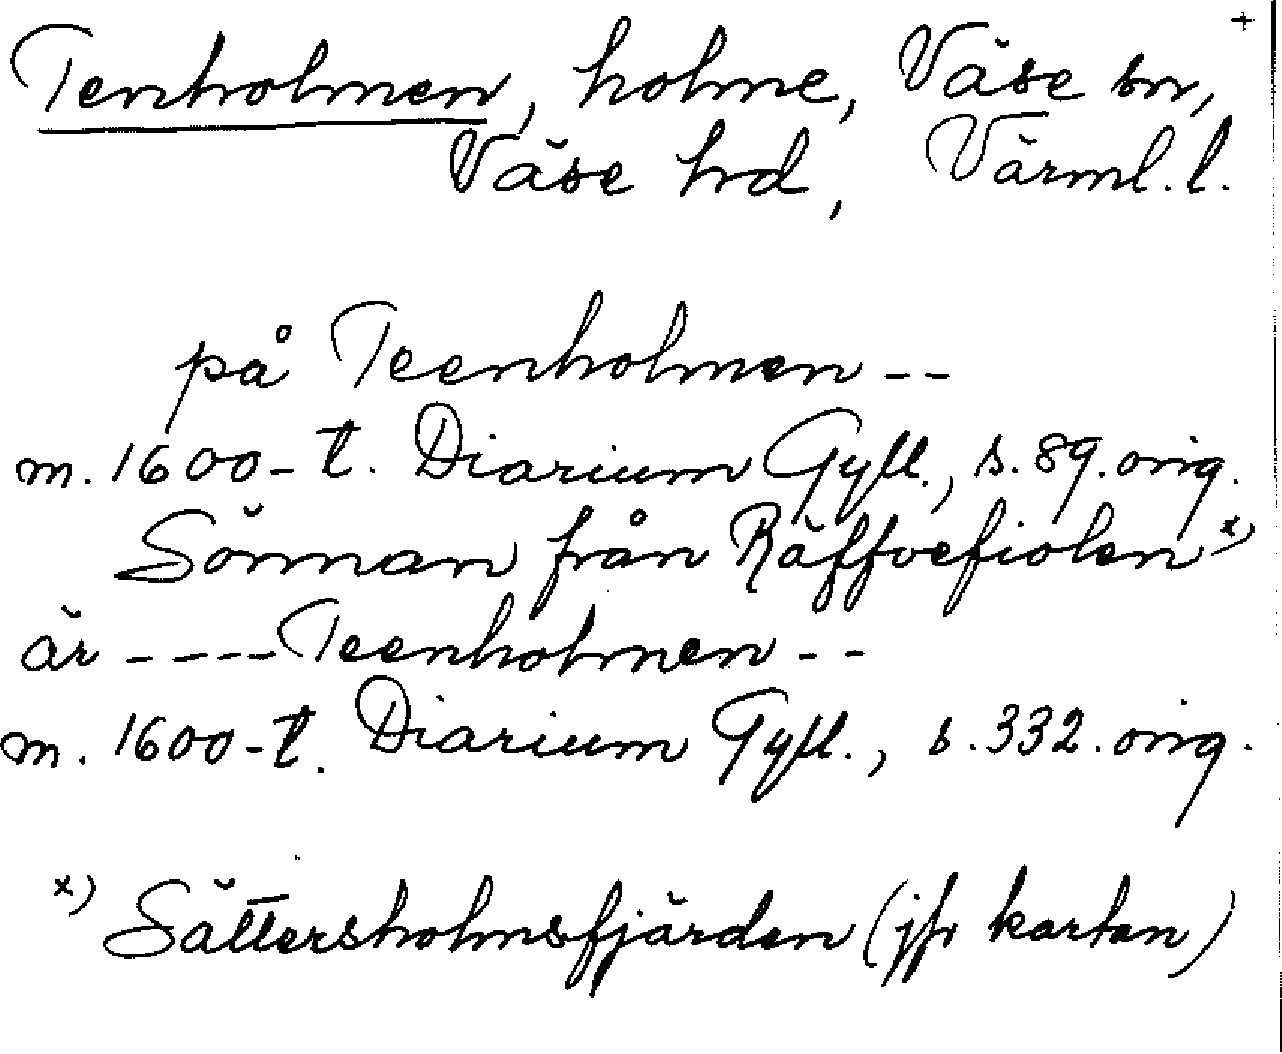 +
Tenholmen, holme, Väse sn,
Väse hd, Värml. l.
på Teenholmen --
m. 1600-t. Diarium Gyll., s. 89. orig.
Sönnan från Räffvefiolen x)
är ---- Teenholmen --
m. 1600-t. Diarium Gyll., s. 332. orig.
x) Sättersholmsfjärden (jfr kartan)